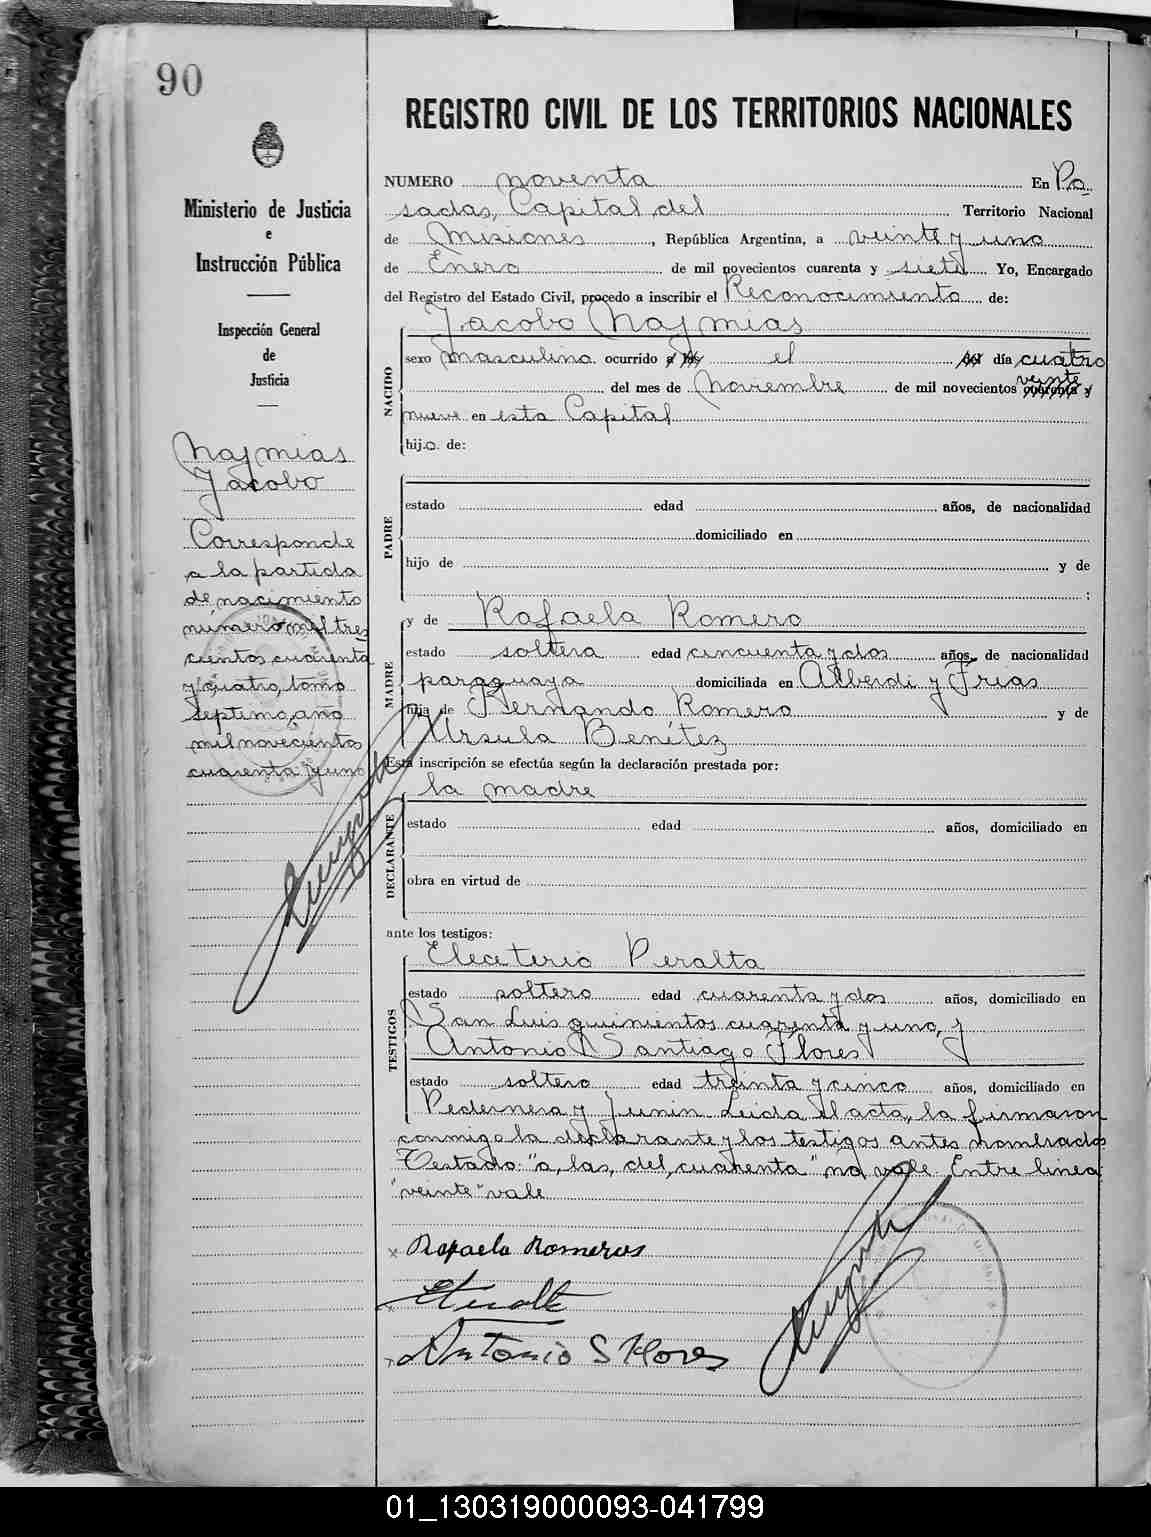 90
Ministerio de Justicia
e
Instrucción Pública
Inspección General
de
Justicia
Najmias
Jacobo
Corresponde
a la partida
de nacimiento
número mil tres
cientos cuarenta
y cuatro, tomo
septimo, año
mil novecientos
cuarenta y uno
REGISTRO CIVIL DE LOS TERRITORIOS NACIONALES
NUMERO noventa En Po
sadas, Capital del Territorio Nacional
de Misiones, República Argentina, a veinte y uno
de Enero de mil novecientos cuarenta y siete Yo, Encargado
del Registro del Estado Civil, procedo a inscribir el Reconocimiento de:
Jacobo Najmias
NACIDO
sexo masculino ocurrido a las el del día cuatro
veinte
del mes de Noviembre de mil novecientos cuarenta y
nueve en esta Capital
hijo de:
PADRE
estado edad años, de nacionalidad
domiciliado en
hijo de y de
;
MADRE
y de Rafaela Romero
estado soltera edad cincuenta y dos años, de nacionalidad
paraguaya domiciliada en Alberdi y Frias
hija de Bernando Romero y de
Ursula Benítez
Esta inscripción se efectúa según la declaración prestada por:
la madre
DECLARANTE
estado edad años, domiciliado en
obra en virtud de
ante los testigos:
TESTIGOS
Eleuterio Peralta
estado soltero edad cuarenta y dos años, domiciliado en
San Luis quinientos cuarenta y uno, y
Antonio Santiago Flores
estado soltero edad treinta y cinco años, domiciliado en
Pedernera y Junin Leida el acta, la firmaron
conmigo la declarante y los testigos antes nombrados
Testado: "a, las, del, cuarenta" no vale. Entre linea
"veinte" vale
x Rafaela Romeros
x Antonio S Flores
01_130319000093-041799